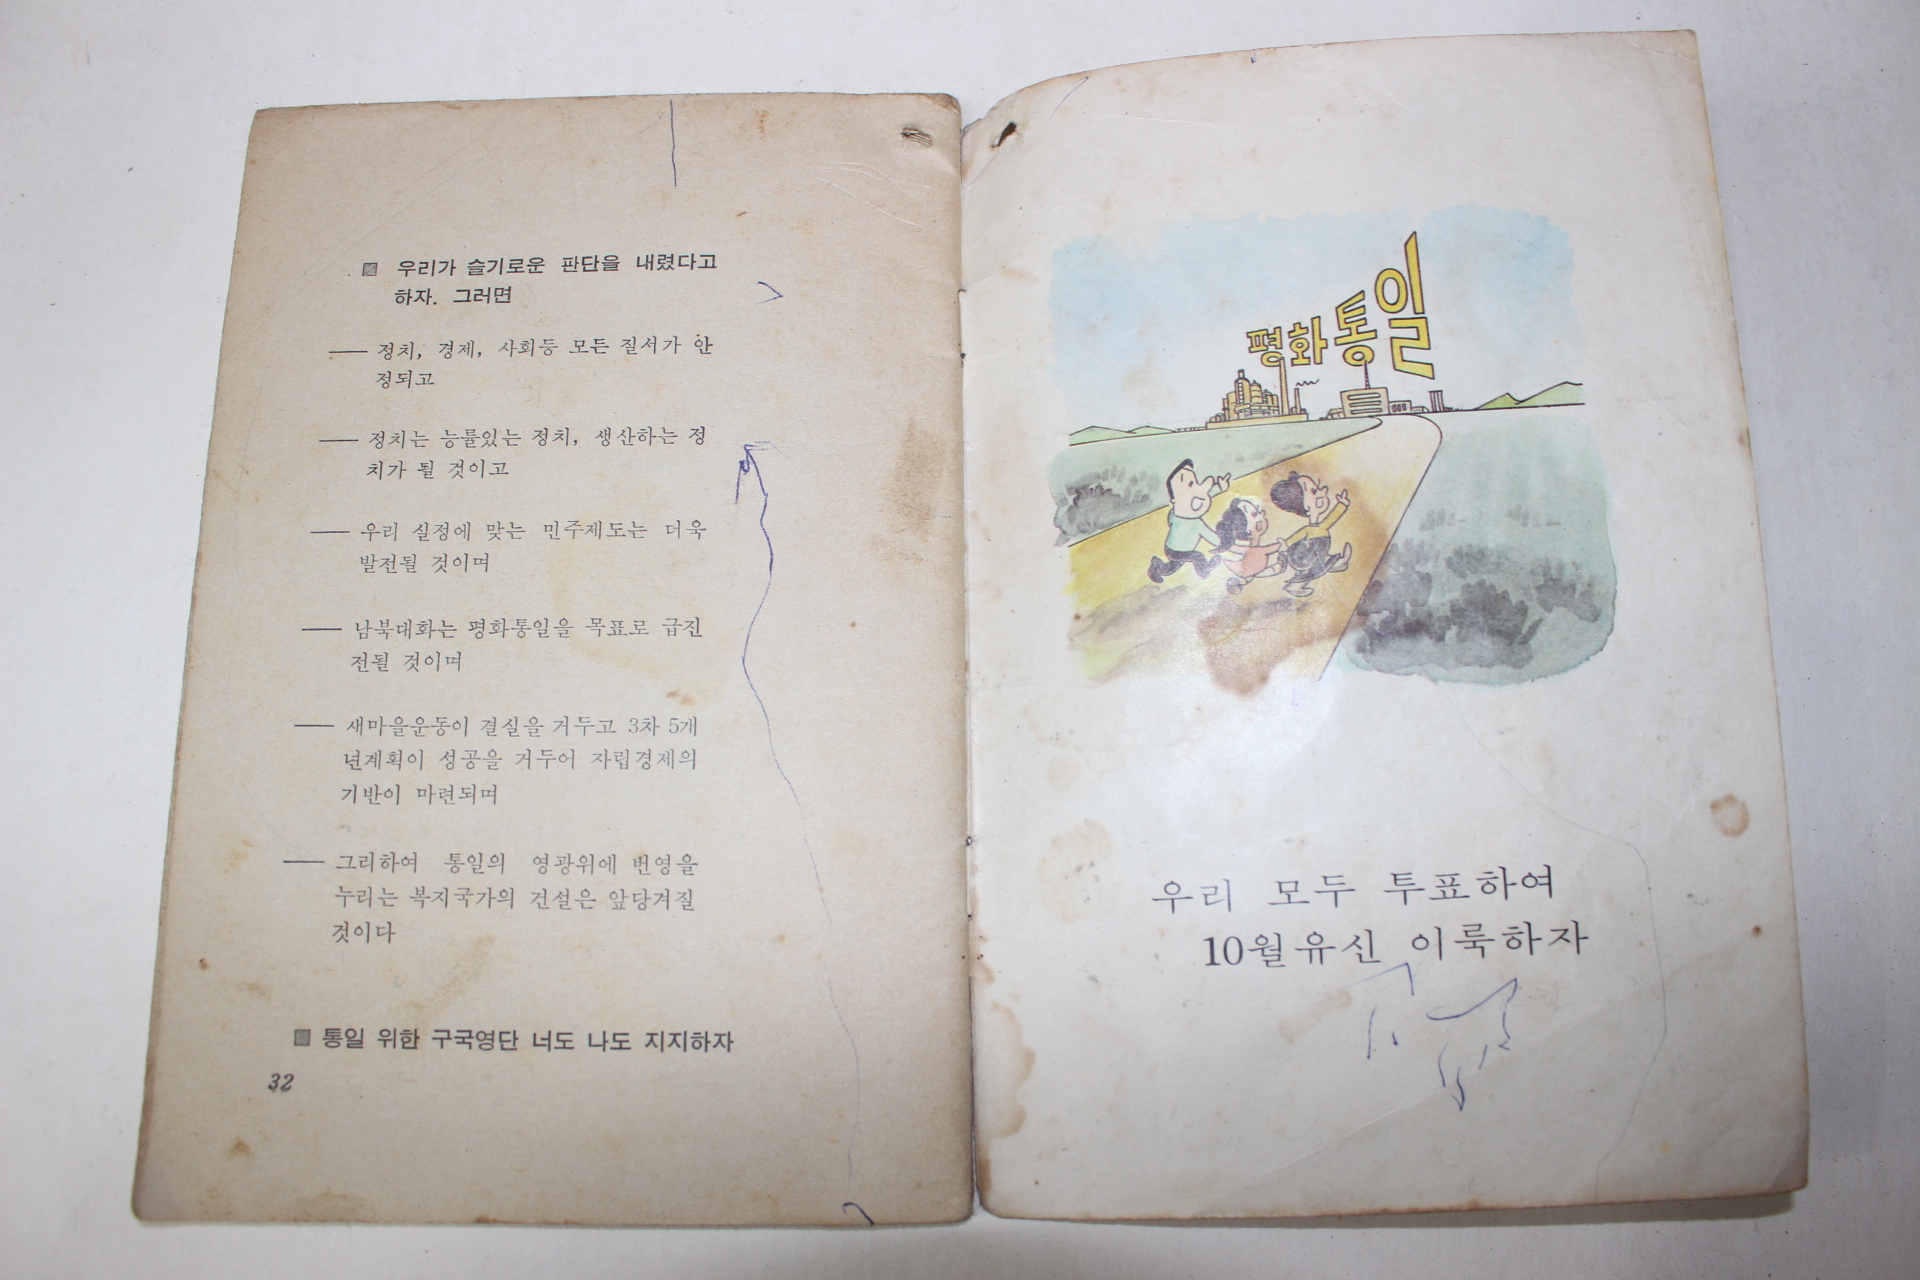 ▣ 우리가 슬기로운 판단을 내렸다고
하자. 그러면
── 정치, 경제, 사회등 모든 질서가 안
정되고
── 정치는 능률있는 정치, 생산하는 정
치가 될 것이고
── 우리 실정에 맞는 민주제도는 더욱
발전될 것이며
── 남북대화는 평화통일을 목표로 급진
전될 것이며
── 새마을운동이 결실을 거두고 3차 5개
년계획이 성공을 거두어 자립경제의
기반이 마련되며
── 그리하여 통일의 영광위에 번영을
누리는 복지국가의 건설은 앞당겨질
것이다
▣ 통일 위한 구국영단 너도 나도 지지하자
32
평화통일
우리 모두 투표하여
10월유신 이룩하자